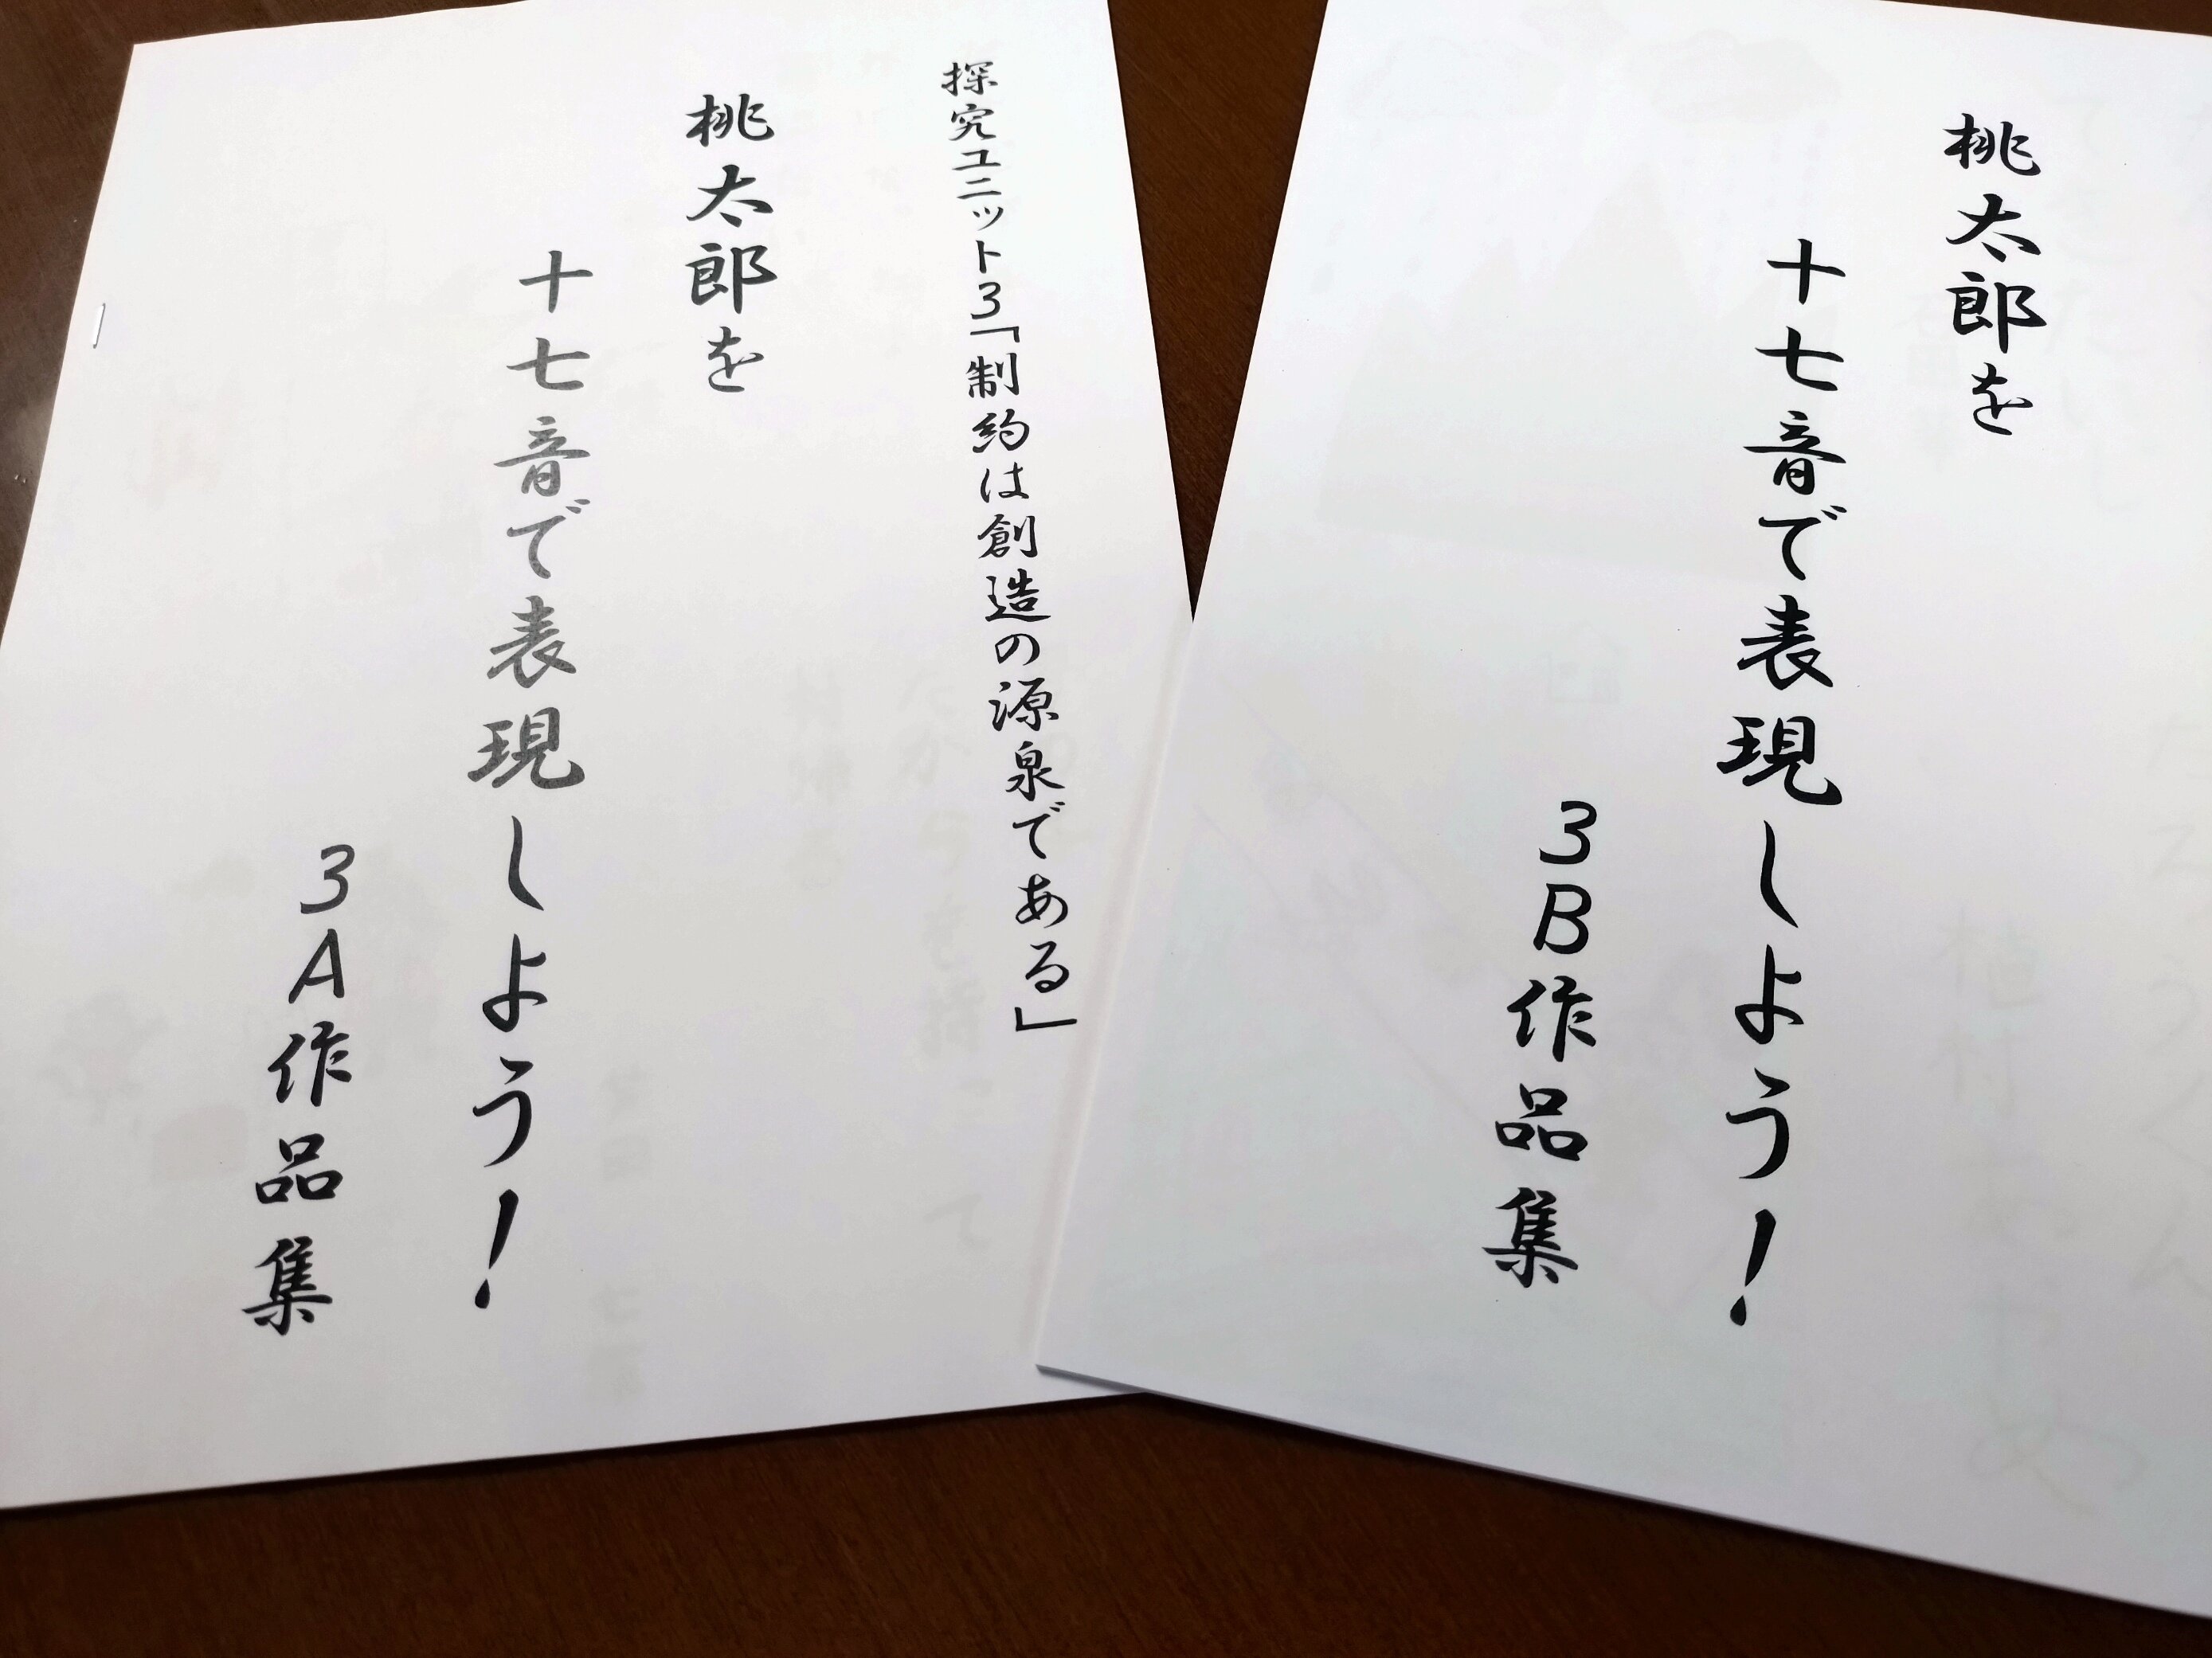 探究ユニット3「制約は創造の源泉である」
桃太郎を
十七音で表現しよう!
3A作品集
桃太郎を
十七音で表現しよう!
3B作品集